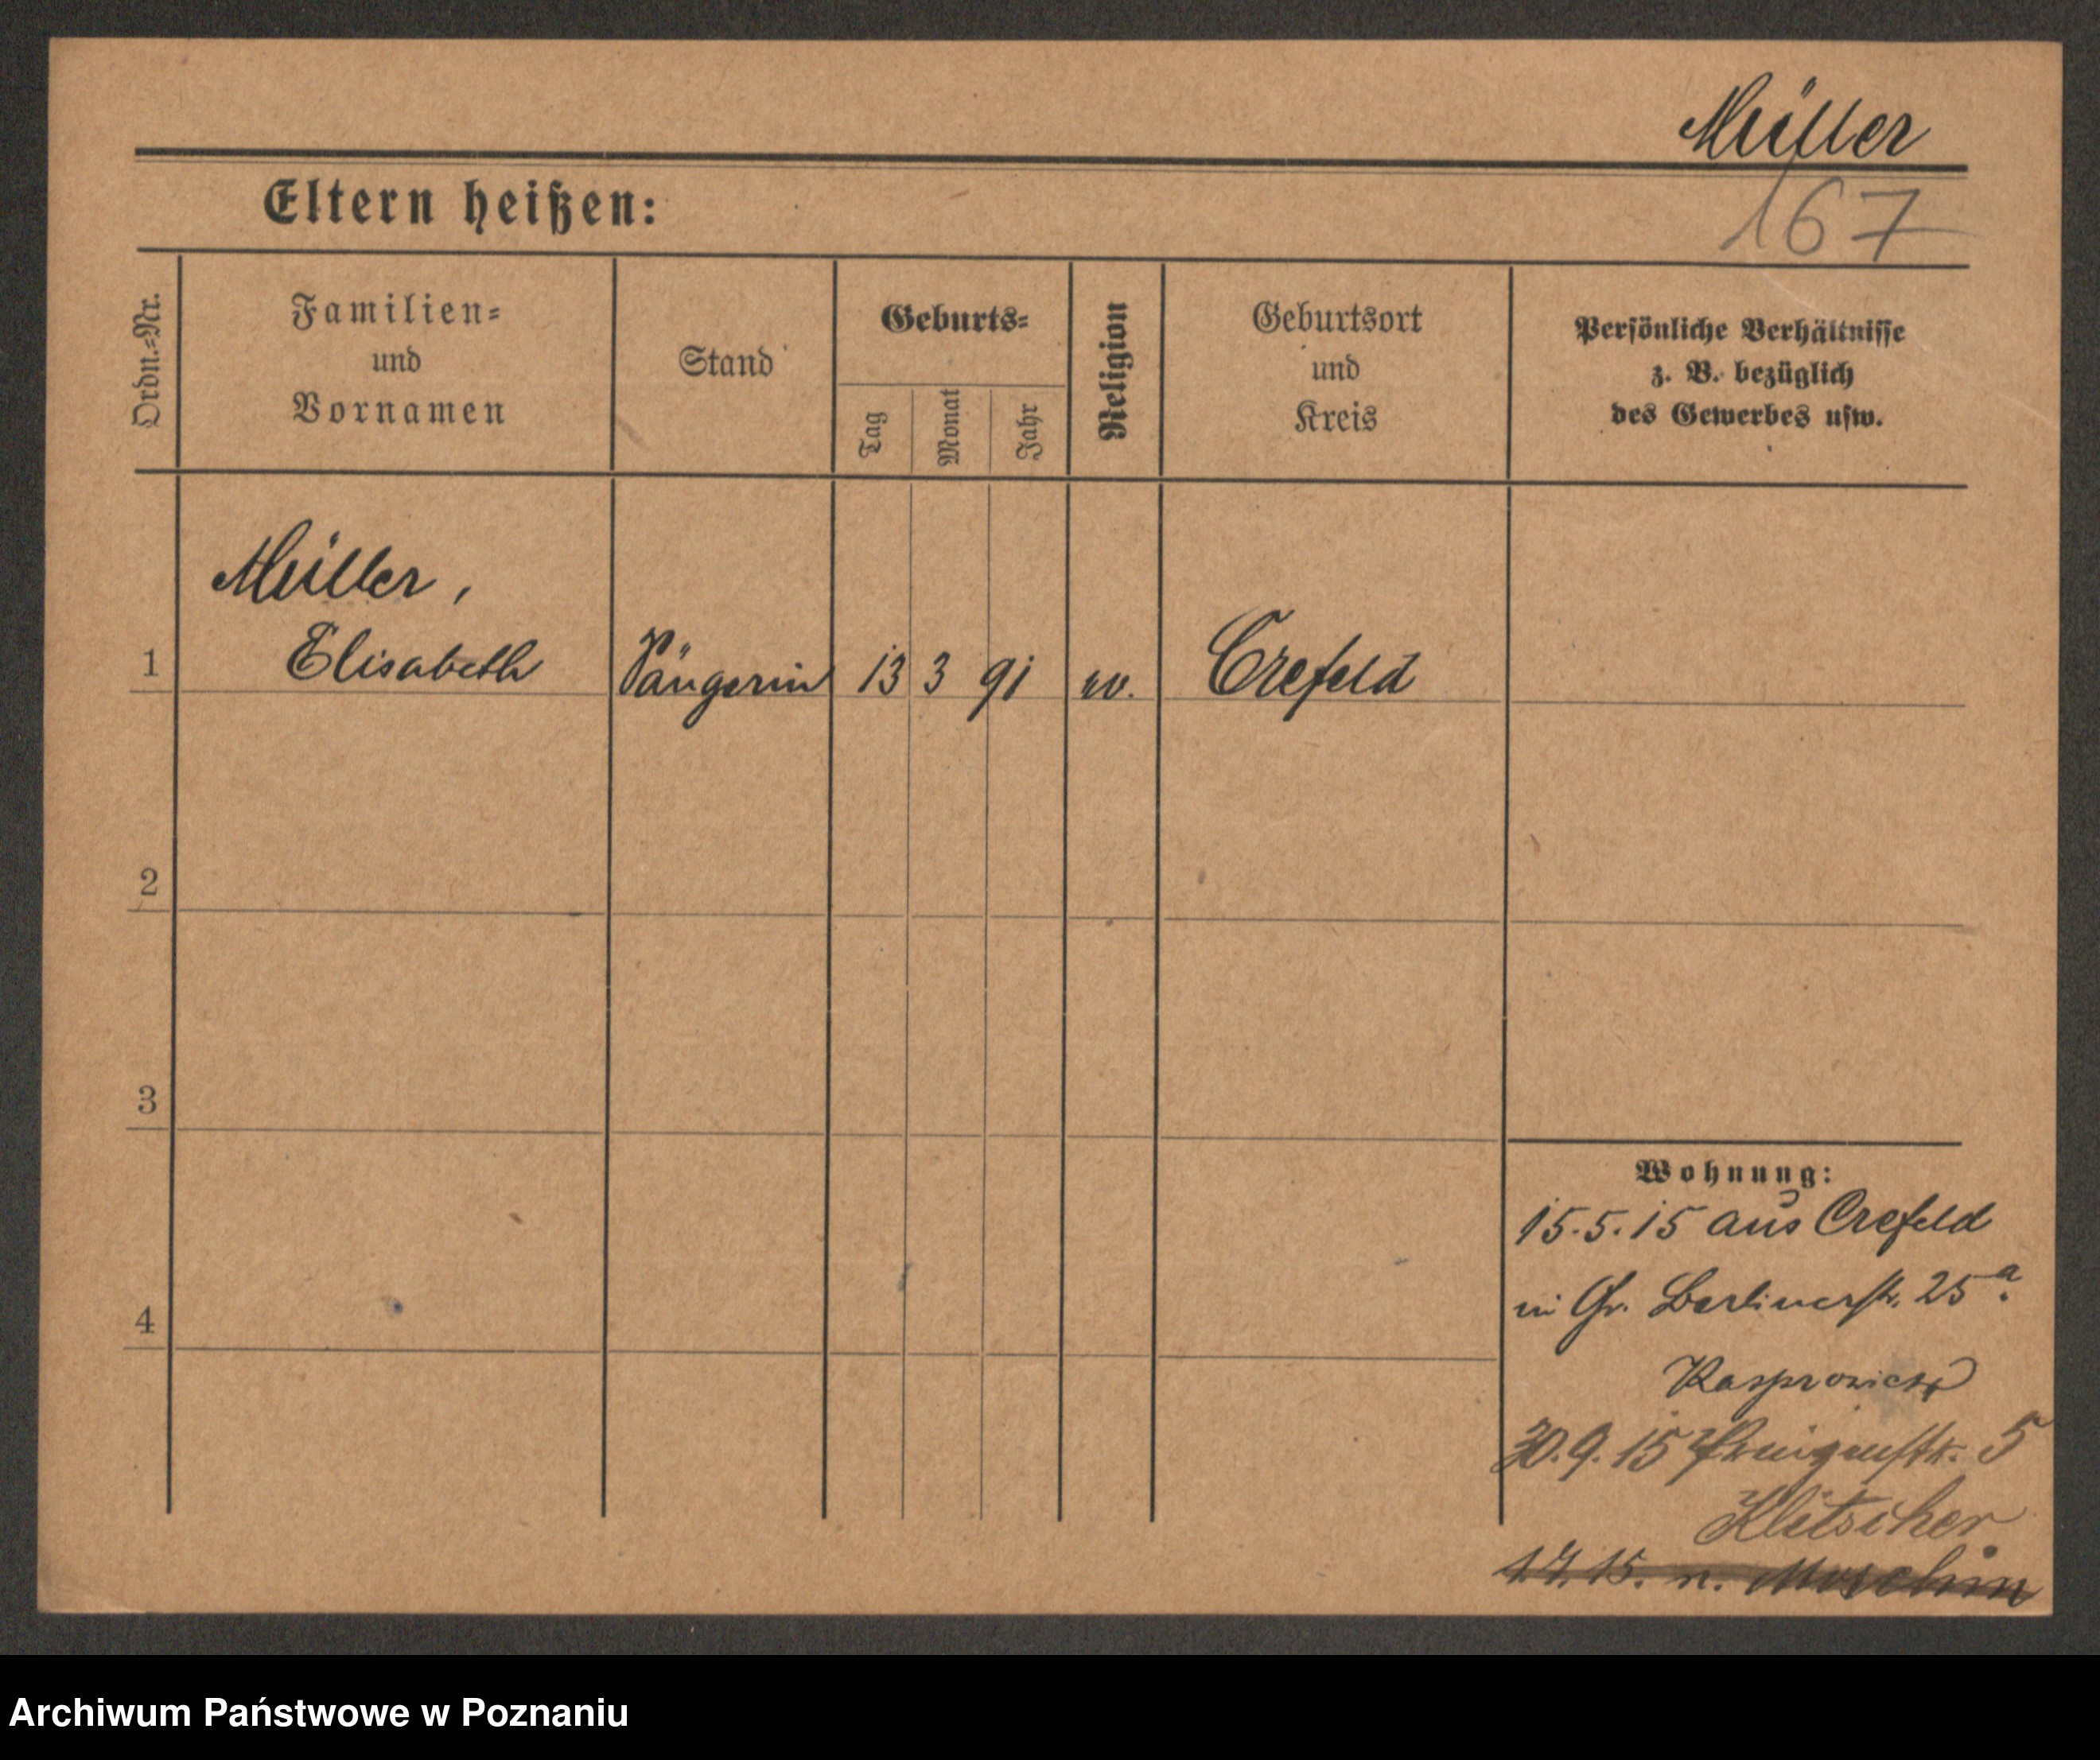 Müller
167
Eltern heißen:
Ordn.-Nr.
Familien-
und
Vornamen
Stand
Geburts-
Tag
Monat
Jahr
Religion
Geburtsort
und
Kreis
Persönliche Verhältnisse
z. B. bezüglich
des Gewerbes usw.
1
Müller,
Elisabeth
Sängerin
13
3
91
ev.
Crefeld
2
3
4
Wohnung:
15.5.15 aus Crefeld
in Gr. Berlinerstr. 25a.
Kasprowicz
30.9.15 5
Klitscher
15. n. Moschin
Archiwum Państwowe w Poznaniu